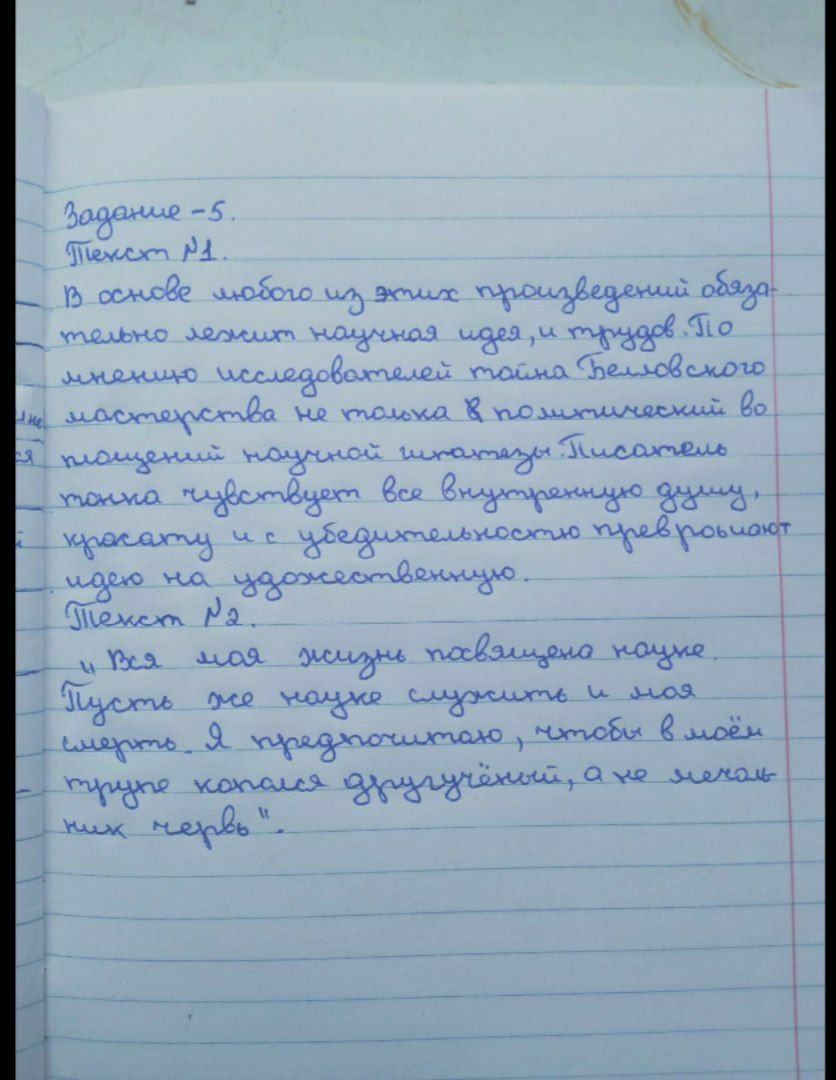 Задание - 5.
Текст №1.
В основе любого из этих произведений обяза-
тельно лежит научная идея, и трудов. По
мнению исследователей тайна Беляовского
мастерства не толька в политический во
площений научной гипатезы. Писатель
тонка чувствует все внутренную душу,
красату и с убедительностью превращают
идею на удожественную.
Текст №2.
„Вся моя жизнь посвящена науке.
Пусть же науке служить и моя
смерть. Я предпочитаю, чтобы в моём
трупе копался другучёный, а не
ник червь".